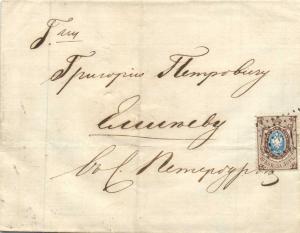 Г. ли
Григорию Петровичу
Елисѣеву
въ С. Петербургъ